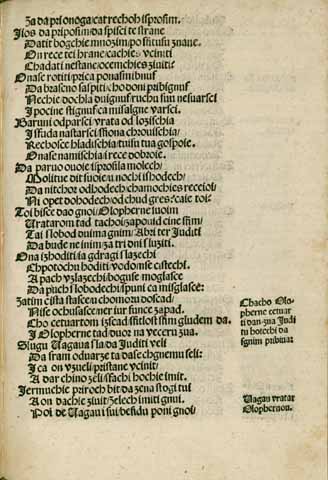 Za da pri onoga/cat rechoh isprosim.
Jlos da priposim/da spisci te strane
Datit bogchie mnozim/po stitusu znane.
On rece tei hrane/cachie: vciniti
Chadati nestane/ocemchies ziuiti:
Onase rotiti/prica
Da braseno
Nechie dochla duignuf ruchu suu nesuarsci
J pocine stignuf ca misalgne varsci.
Baruni odparsci/vrata od
Jssuda nastarsci/
Rechosce hladischia/tuisu tua gospoie.
Onase namischia/i rece dobroie.
Da paruo ouoie i/prosila molech/
Molitue dit suoie/u nochi ishodech/
Da nitchor odhodech/chamochies receioi/
Ni opet dohodech/od chud gres:caie toi:
Toi bisce dao gnoi/Olopherne suoim
Vratarom tad tachoi/zapouid cine sfim/
Tai slobod duima gnim/Abri ter Juditi
Da bude ne inim/za tri dni sluziti.
Ona ishoditi/ia gdragi slazechi
Chpotochu hoditi/vodomse cistechi.
A pach vzlazechi/boguse moglasce
Da puch slobodechi/puni ca misglasce:
Zatim cista stasce/u chomoru doscad/
Nise ochusasce/ner iur sunce zapad.
Cho cetuartom izscad/sitlost sim gludem da.
J Olopherne tad/duor na vecera zna.
Slugu Uagaua sla/da Juditi veli
Da sram oduarze ta/dase chgnemu seli:
J ca on vzueli/pristane vciniti/
A dar chino zeli/sfachi hochie imit.
Jermuchie priroch bit/da zena stogi tui
A on dachie ziuit/zelech imiti gnui.
Poi de Uagau i sui/besidu poni gnoi/
Chacho Olo-
pherne cetuar
ti dan zua Judi
tu hotechi da
sgnim
Uagau vratar
Olophernou.